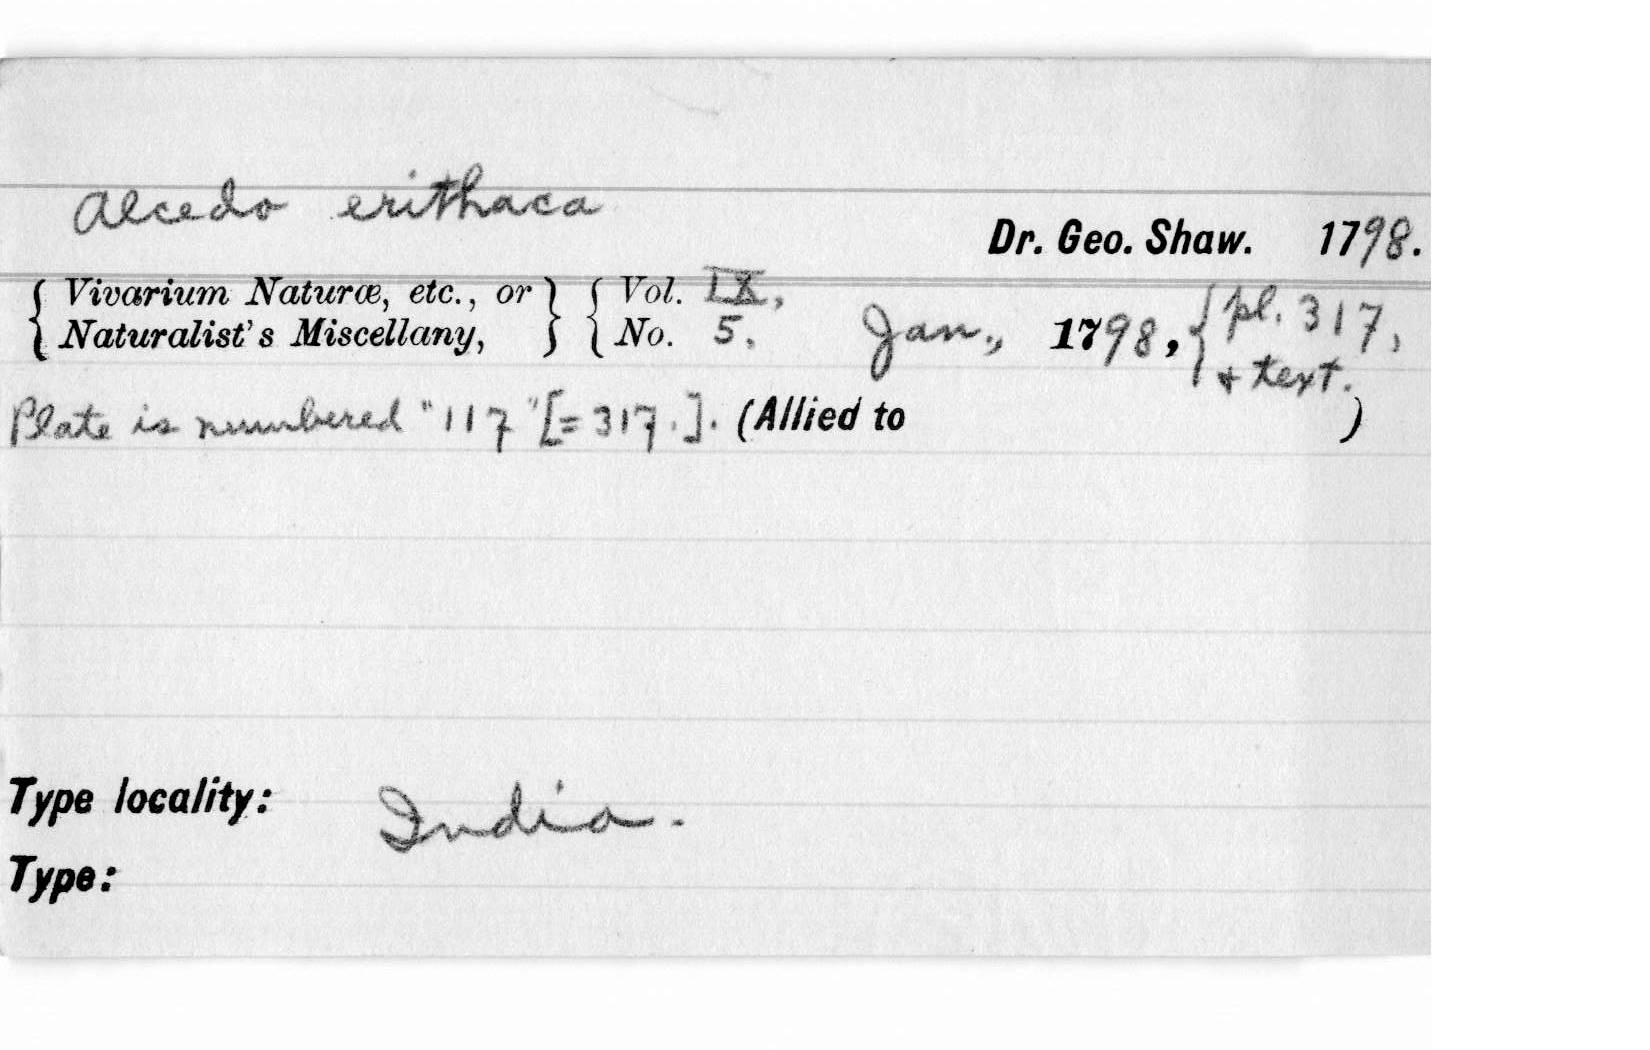 Alcedo erithaca
Dr. Geo. Shaw. 1798.
{ Vivarium Naturæ, etc., or } { Vol. IX,
{ Naturalist's Miscellany, } { No. 5. Jan., 1798, { pl. 317,
& text.
Plate is numbered "117" [= 317.]. (Allied to )
Type locality: India.
Type: